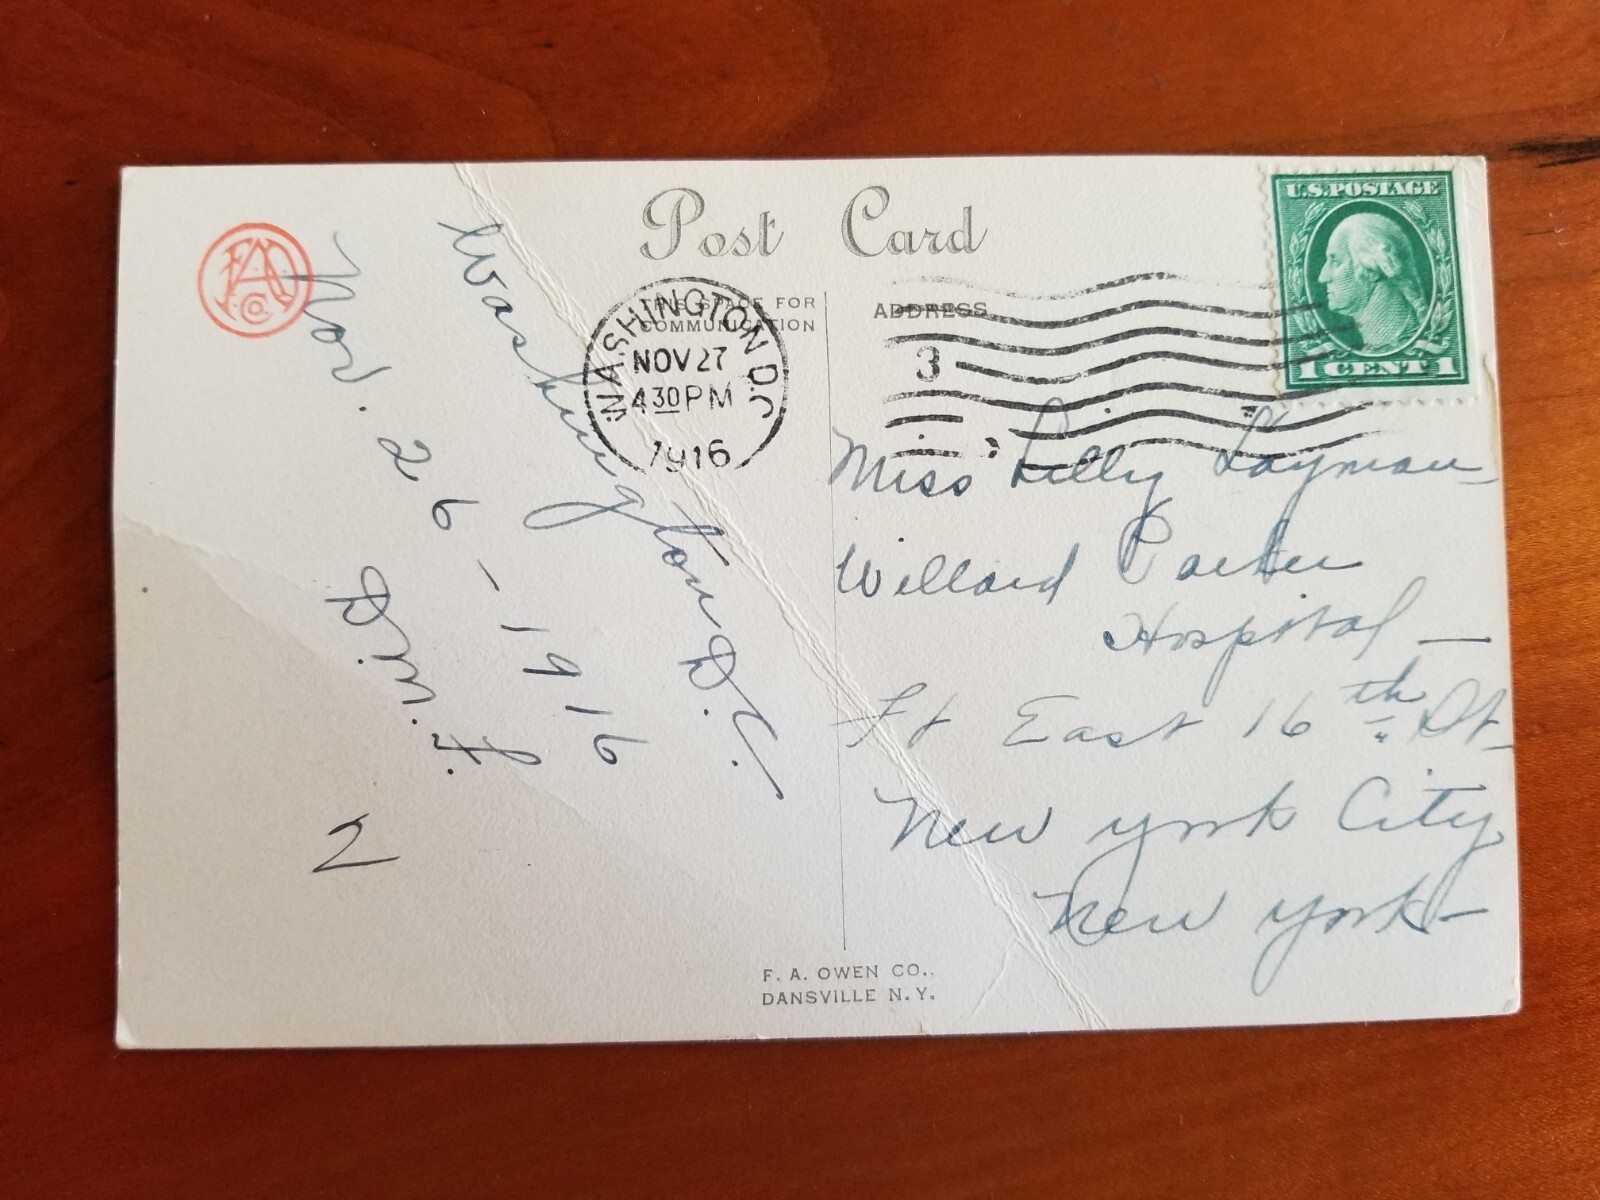 Post Card
THIS SPACE FOR
COMMUNICATION
ADDRESS
U.S. POSTAGE
1 CENT 1
WASHINGTON D.C.
NOV 27
4 30 PM
1916
3
Washington D.C.
Nov. 26 – 1916
D.M.L.
2
Miss Lilly Layman
Willard Parker
Hospital –
Ft East 16th St
New York City
New York –
F. A. OWEN CO.,
DANSVILLE N. Y.
FAO
Co.